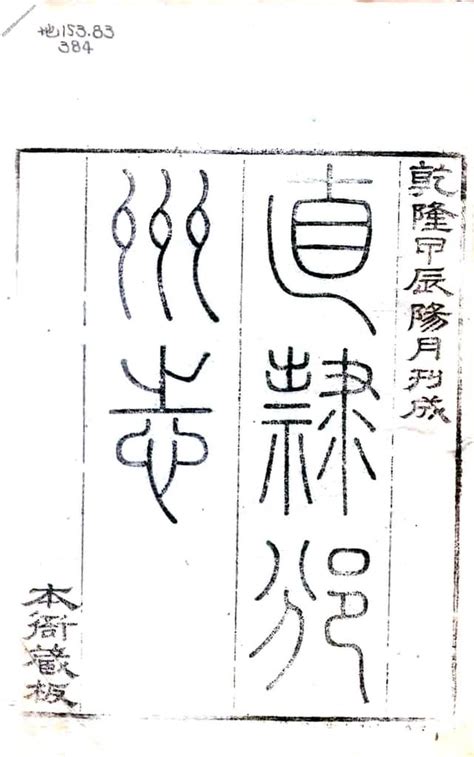 地153.83
384
乾隆甲辰陽月刊成
直隸邠
州志
本衙藏板